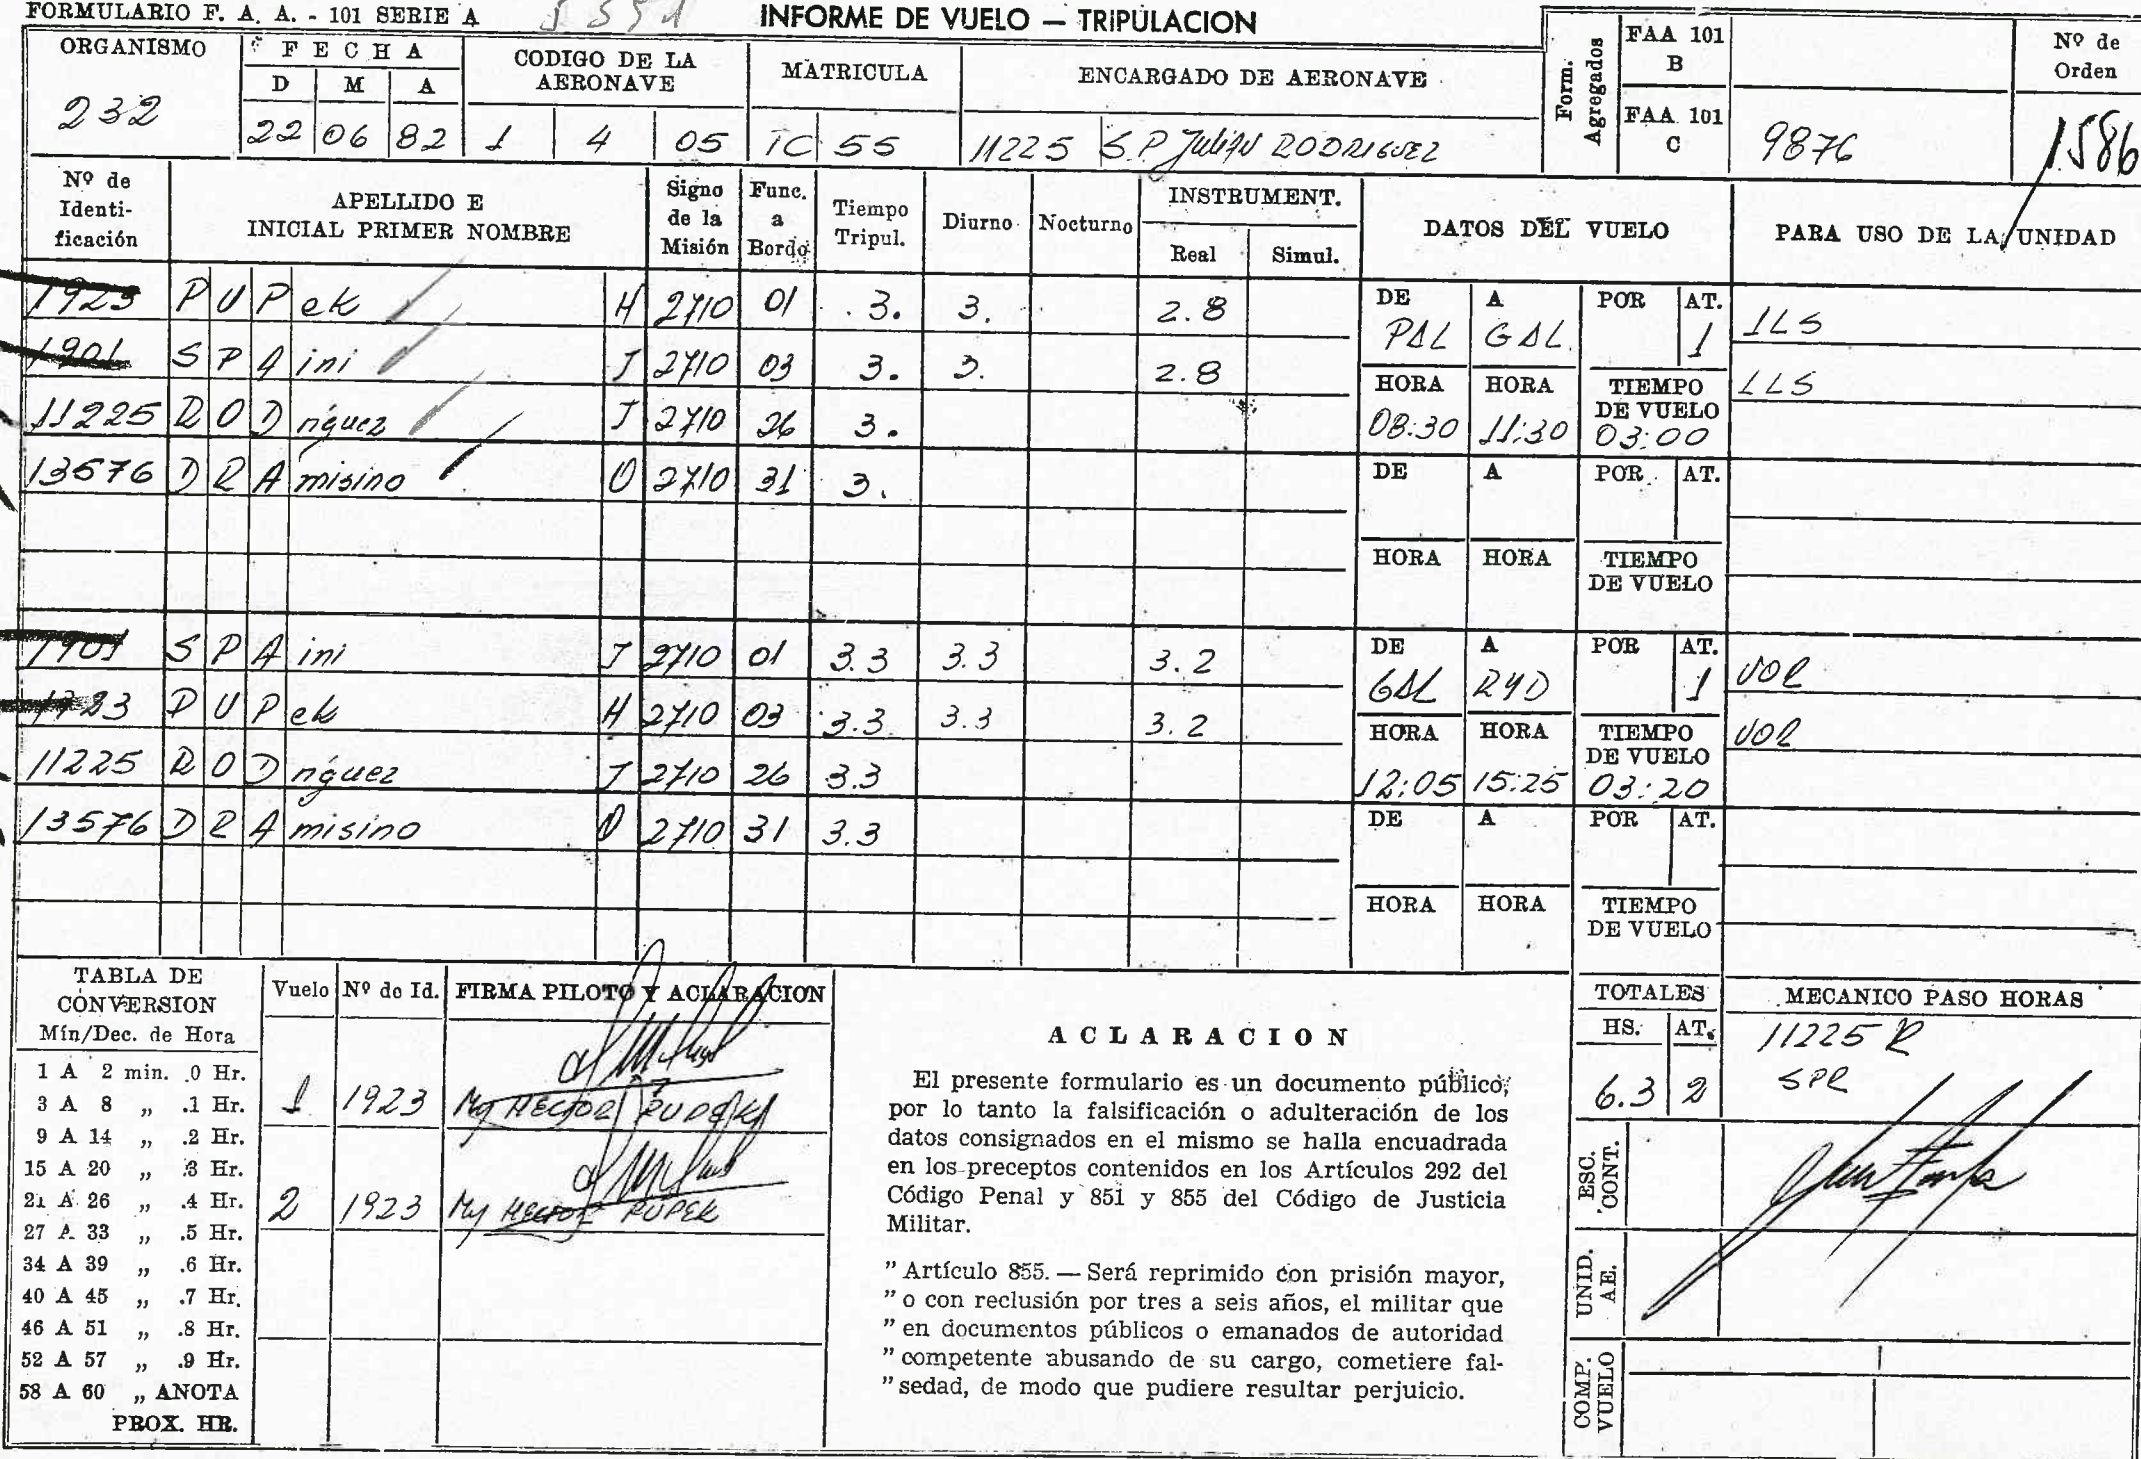 FORMULARIO F. A. A. - 101 SERIE A
INFORME DE VUELO — TRIPULACION
ORGANISMO
232
FECHA
D M A
22 06 82
CODIGO DE LA AERONAVE
1 4 05
MATRICULA
TC 55
ENCARGADO DE AERONAVE
11225 S.P. Julián RODRIGUEZ
Form. Agregados
FAA 101 B
FAA 101 C
9876
Nº de Orden
1586
Nº de Identificación
APELLIDO E INICIAL PRIMER NOMBRE
Signo de la Misión
Func. a Bordo
Tiempo Tripul.
Diurno
Nocturno
INSTRUMENT.
Real Simul.
DATOS DEL VUELO
PARA USO DE LA UNIDAD
1923 PUPek H 2710 01 3. 3. 2.8
1901 SPAini J 2710 03 3. 3. 2.8
11225 RODríguez J 2710 26 3.
13576 DRAmisino O 2710 31 3.
DE A POR AT.
PAL GAL 1
ILS
HORA HORA TIEMPO DE VUELO
08:30 11:30 03:00
ILS
DE A POR AT.
HORA HORA TIEMPO DE VUELO
1901 SPAini J 2710 01 3.3 3.3 3.2
1923 PUPek H 2710 03 3.3 3.3 3.2
11225 RODríguez J 2710 26 3.3
13576 DRAmisino O 2710 31 3.3
DE A POR AT.
GAL RYD 1
VOR
HORA HORA TIEMPO DE VUELO
12:05 15:25 03:20
VOR
DE A POR AT.
HORA HORA TIEMPO DE VUELO
TABLA DE CONVERSION
Mín/Dec. de Hora
1 A 2 min. .0 Hr.
3 A 8 „ .1 Hr.
9 A 14 „ .2 Hr.
15 A 20 „ .3 Hr.
21 A 26 „ .4 Hr.
27 A 33 „ .5 Hr.
34 A 39 „ .6 Hr.
40 A 45 „ .7 Hr.
46 A 51 „ .8 Hr.
52 A 57 „ .9 Hr.
58 A 60 „ ANOTA
PROX. HR.
Vuelo Nº de Id. FIRMA PILOTO Y ACLARACION
1 1923 My HECTOR
2 1923 My HECTOR PUPEK
ACLARACION
El presente formulario es un documento público,
por lo tanto la falsificación o adulteración de los
datos consignados en el mismo se halla encuadrada
en los preceptos contenidos en los Artículos 292 del
Código Penal y 851 y 855 del Código de Justicia
Militar.
" Artículo 855. — Será reprimido con prisión mayor,
" o con reclusión por tres a seis años, el militar que
" en documentos públicos o emanados de autoridad
" competente abusando de su cargo, cometiere fal-
" sedad, de modo que pudiere resultar perjuicio.
TOTALES
HS. AT.
6.3 2
MECANICO PASO HORAS
11225 R
SPR
ESC. CONT.
UNID. AE.
COMP. VUELO